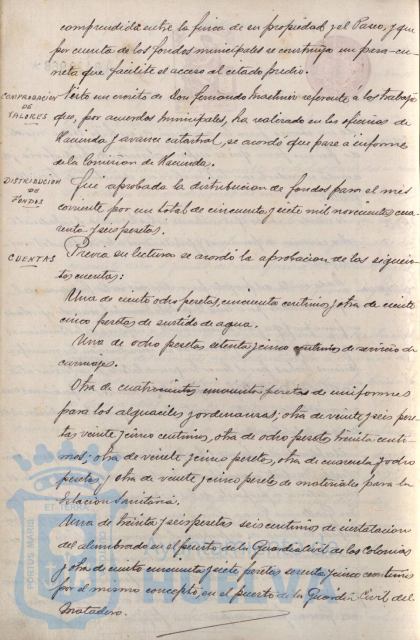 comprendida entre la finca de su propiedad y el Paseo, y que
por cuenta de los fondos municipales se construya un para-cu-
neta que facilite el acceso al citado predio.
COMPROBACION DE VALORES
Visto un escrito de Don Fernando referente á los trabajos
que, por acuerdos municipales, ha realizado en las oficinas de
Hacienda y avance catastral, se acordó que pase á informe
de la Comision de Hacienda.
DISTRIBUCION DE FONDOS
Fué aprobada la distribucion de fondos para el mes
corriente por un total de cincuenta y siete mil novecientas cua-
renta y seis pesetas.
CUENTAS
Previa su lectura se acordó la aprobacion de las siguien-
tes cuentas:
Una de ciento ocho pesetas, cincuenta centimos y otra de ciento
cinco pesetas de surtido de agua.
Una de ocho pesetas setenta y cinco centimos de servicio de
carruajes.
Otra de cuatrocientas cincuenta pesetas de uniformes
para los alguaciles y ordenanzas; otra de veinte y seis pese-
tas veinte y cinco centimos, otra de ocho pesetas treinta centi-
mos; otra de veinte y cinco pesetas, otra de cuarenta y ocho
pesetas y otra de veinte y cinco pesetas de materiales para la
Estacion Sanitaria.
Una de treinta y seis pesetas seis centimos de instalacion
del alumbrado en el puesto de la Guardia Civil de las Colonias
y otra de ciento cincuenta y siete pesetas setenta y cinco centimos
por el mismo concepto, en el puesto de la Guardia Civil del
Matadero.
PORTUS MARIS ET TERRAE
Ayuntamiento de
HUELVA